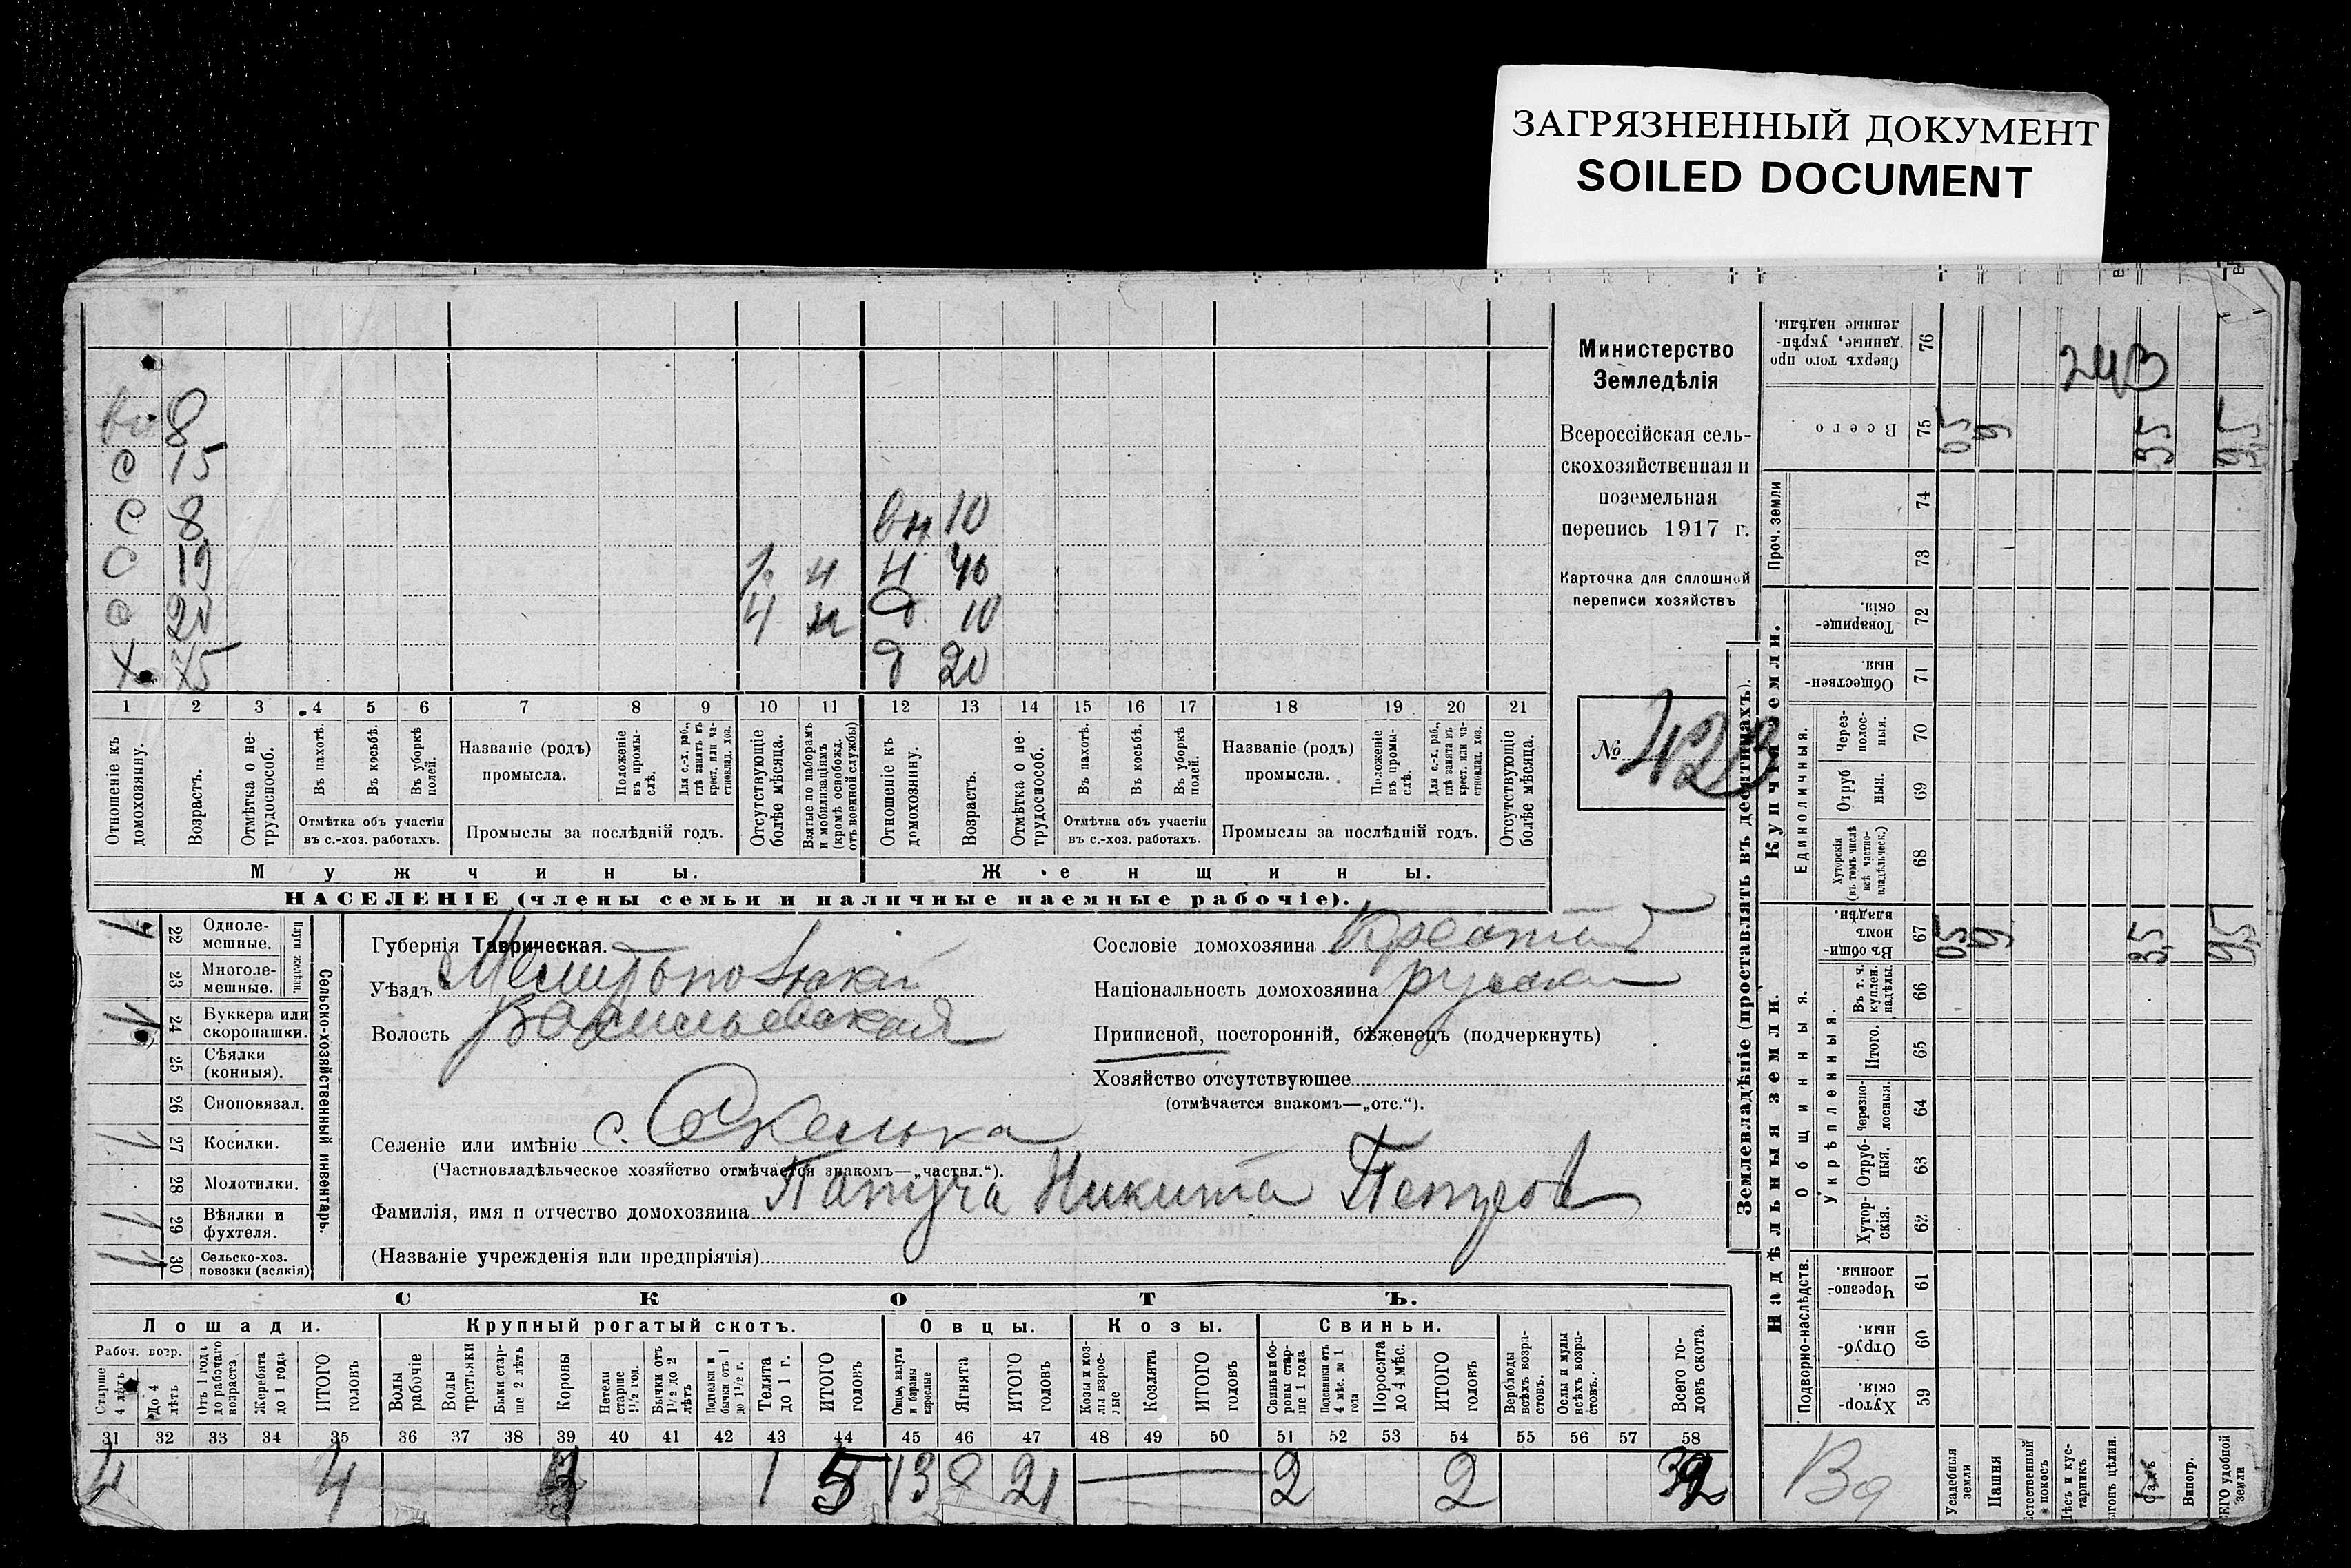 ЗАГРЯЗНЕННЫЙ ДОКУМЕНТ
SOILED DOCUMENT
8
С 15
С 8 вн 10
С 19 Н 40
20 10
Х 75 д 20
1 2 3 4 5 6 7 8 9 10 11 12 13 14 15 16 17 18 19 20 21
Отношеніе къ домохозяину.
Возрастъ.
Отмѣтка о нетрудоспособ.
Въ пахотѣ.
Въ косьбѣ.
Въ уборкѣ полей.
Отмѣтка объ участіи
въ с.-хоз. работахъ.
Названіе (родъ)
промысла.
Положеніе въ промыслѣ.
Для с.-х. раб., гдѣ занятъ въ крест. или частновлад. хоз.
Промыслы за послѣдній годъ.
Отсутствующіе болѣе мѣсяца.
Взятые по наборамъ и мобилизаціямъ (кромѣ освобожд. отъ военной службы)
Отношеніе къ домохозяину.
Возрастъ.
Отмѣтка о нетрудоспособ.
Въ пахотѣ.
Въ косьбѣ.
Въ уборкѣ полей.
Отмѣтка объ участіи
въ с.-хоз. работахъ.
Названіе (родъ)
промысла.
Положеніе въ промыслѣ.
Для с.-х. раб., гдѣ занята въ крест. или частновлад. хоз.
Промыслы за послѣдній годъ.
Отсутствующіе болѣе мѣсяца.
Мужчины. Женщины.
НАСЕЛЕНІЕ (члены семьи и наличные наемные рабочіе).
Министерство
Земледѣлія
Всероссійская сель-
скохозяйственная и
поземельная
перепись 1917 г.
Карточка для сплошной
переписи хозяйствъ
№ 423
Сельско-хозяйственный инвентарь.
Плуги желѣзн.
22 Одноле-
мешные.
23 Многоле-
мешные.
24 Буккера или
скоропашки.
25 Сѣялки
(конныя).
26 Сноповязал.
27 Косилки.
28 Молотилки.
29 Вѣялки и
фухтеля.
30 Сельско-хоз.
повозки (всякія)
Губернія Таврическая.
Уѣздъ Мелитопольскій
Волость Васильевская
Селеніе или имѣніе с. Скелька
(Частновладѣльческое хозяйство отмѣчается знакомъ—„частвл.“).
Фамилія, имя и отчество домохозяина Папуча Никита Петровъ
(Названіе учрежденія или предпріятія)
Сословіе домохозяина
Національность домохозяина русскій
Приписной, посторонній, бѣженецъ (подчеркнуть)
Хозяйство отсутствующее
(отмѣчается знакомъ—„отс.“).
СКОТЪ.
Лошади. Крупный рогатый скотъ. Овцы. Козы. Свиньи.
Рабоч. возр.
Старше 4 лѣтъ
До 4 лѣтъ
Отъ 1 года до рабочаго возраста
Жеребята до 1 года
ИТОГО головъ
Волы рабочіе
Волы третьяки
Быки старше 2 лѣтъ
Коровы
Нетели старше 1½ год.
Бычки отъ 1½ до 2 лѣтъ
Подтелки и бычки отъ 1 до 1½ г.
Телята до 1 г.
ИТОГО головъ
Овцы, валухи и бараны взрослые
Ягнята
ИТОГО головъ
Козы и козлы взрослые
Козлята
ИТОГО головъ
Свиньи и боровы старше 1 года
Подсвинки отъ 4 мѣс. до 1 года
Поросята до 4 мѣс.
ИТОГО головъ
Верблюды всѣхъ возрастовъ.
Ослы и мулы всѣхъ возрастовъ.
Всего головъ скота.
31 32 33 34 35 36 37 38 39 40 41 42 43 44 45 46 47 48 49 50 51 52 53 54 55 56 57 58
4 4 1 5 13 8 21 2 2 32
Землевладѣніе (проставлять въ десятинахъ).
Купчія земли.
Надѣльныя земли.
Сверхъ того проданные, укрѣпленные надѣлы. 76 243
Всего 75 05 9 35
Проч. земли 74
73
Товарищескія. 72
Общественныя 71
Единоличныя.
Черезполосныя. 70
Отрубныя. 69
Хуторскія (въ томъ числѣ всѣ частновладѣльческ.) 68
Общинныя.
Въ общинномъ владѣн. 67 05 9 35
Укрѣпленныя.
Въ т. ч. куплен. надѣлы. 66
Итого. 65
Черезполосныя. 64
Отрубныя. 63
Хуторскія. 62
Подворно-наслѣдств.
Черезполосныя 61
Отрубныя 60
Хуторскія 59
Усадебныя земли
Пашня
Естественный покосъ
Лѣсъ и кустарникъ
Выгонъ цѣлин.
Виногр.